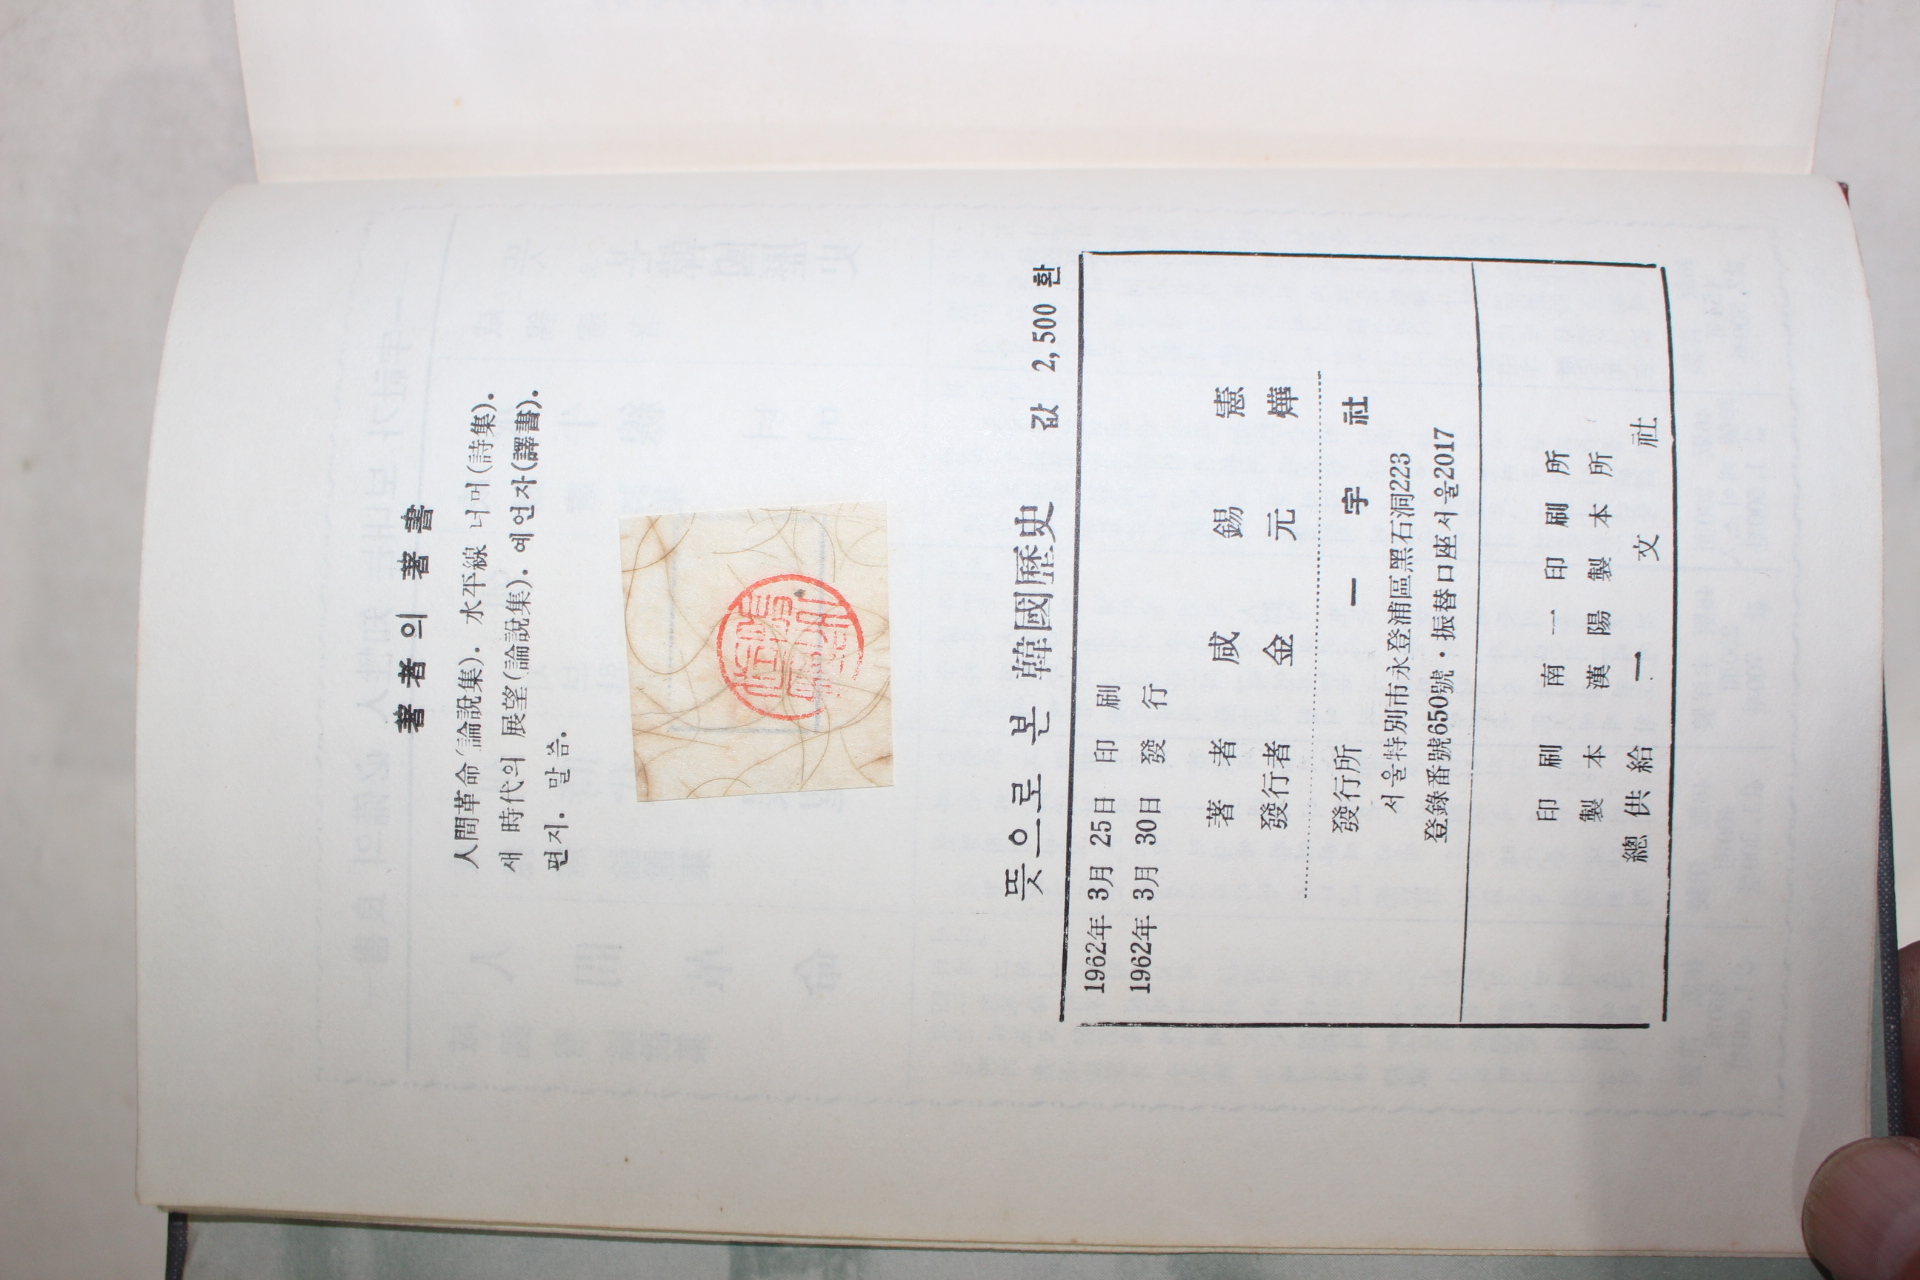 著者의 著書
人間革命(論說集). 水平線 너머(詩集).
새 時代의 展望(論說集). 예언자(譯書).
편지. 말씀.
뜻으로 본 韓國歷史 값 2,500 환
1962年 3月 25日 印刷
1962年 3月 30日 發行
著者 咸錫憲
發行者 金元燁
發行所 一宇社
서울特別市永登浦區黑石洞223
登錄番號650號・振替口座서울2017
印刷 南一印刷所
製本 漢陽製本所
總供給 一文社